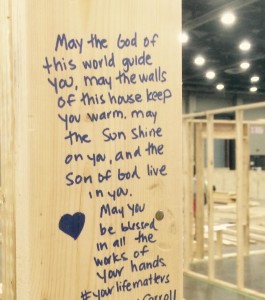 May the God of
this world guide
you, may the walls
of this house keep
you warm. may
the Sun shine
on you, and the
son of God live
in you.
May you
be blessed
in all the
works of
your hands
#yourlifematters
Carroll